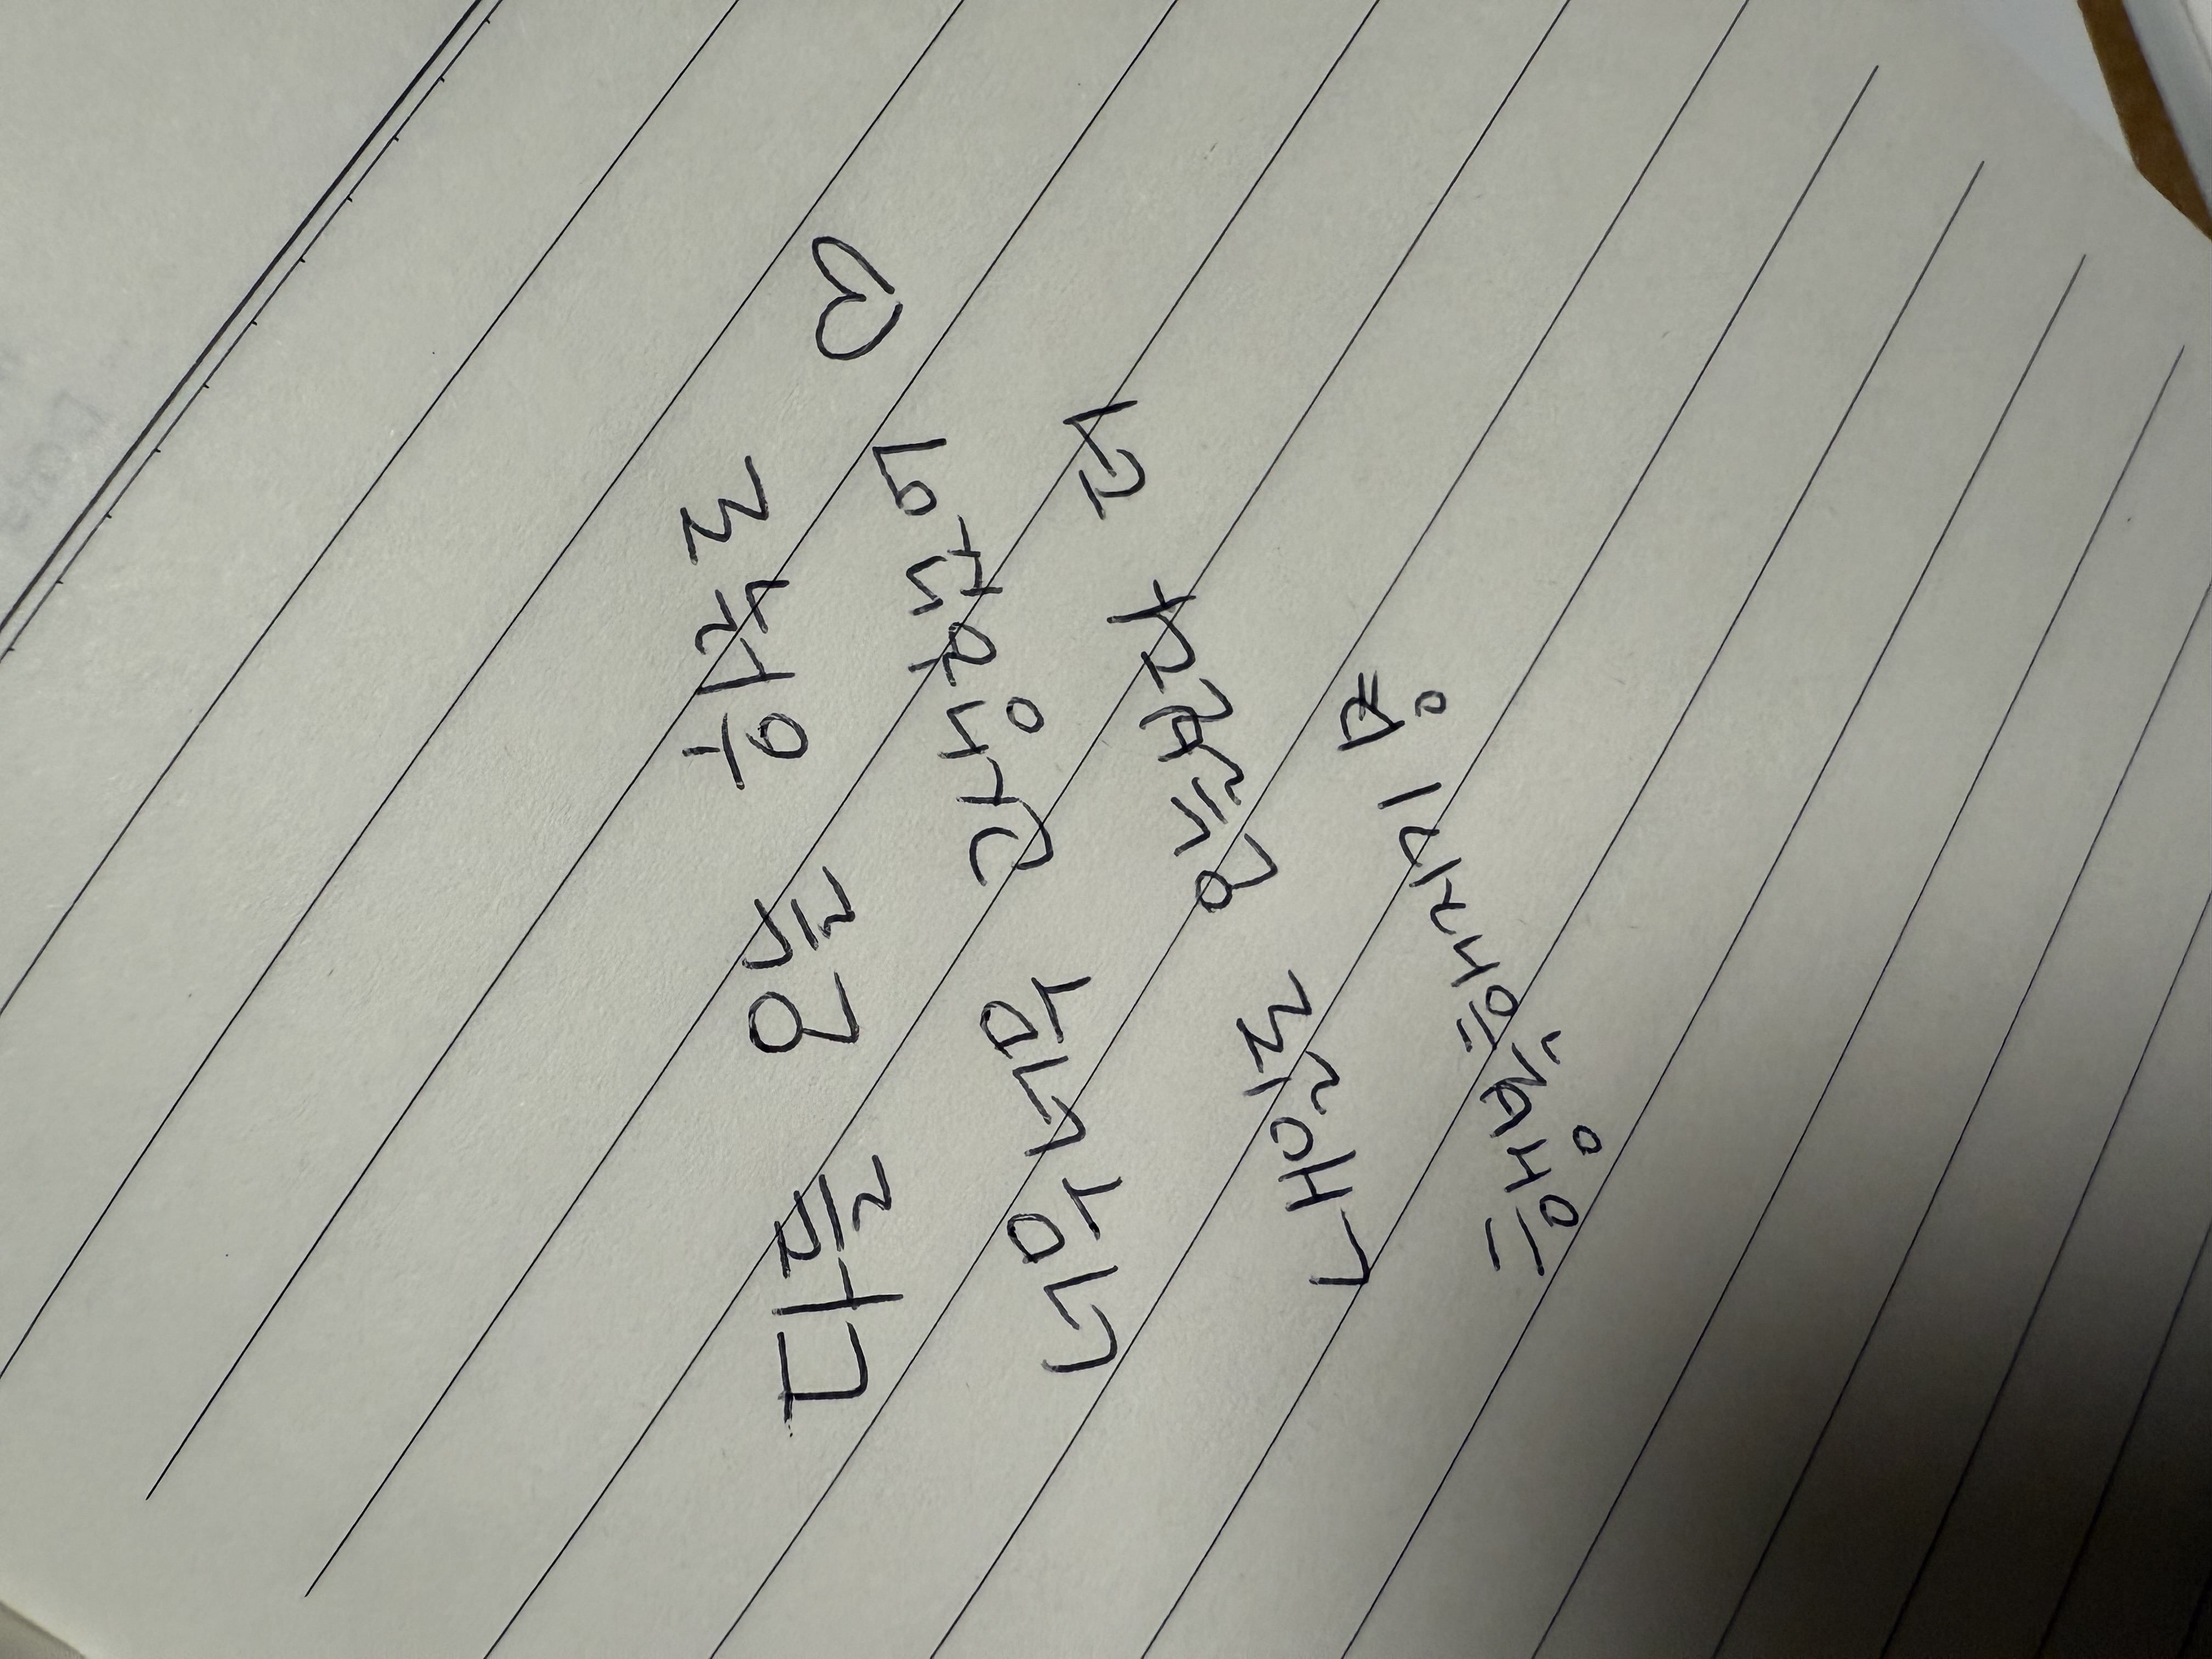 다들 오늘 하루도
너무너무 고생했어 ♡
내일도 오늘보다 더
행복해지기